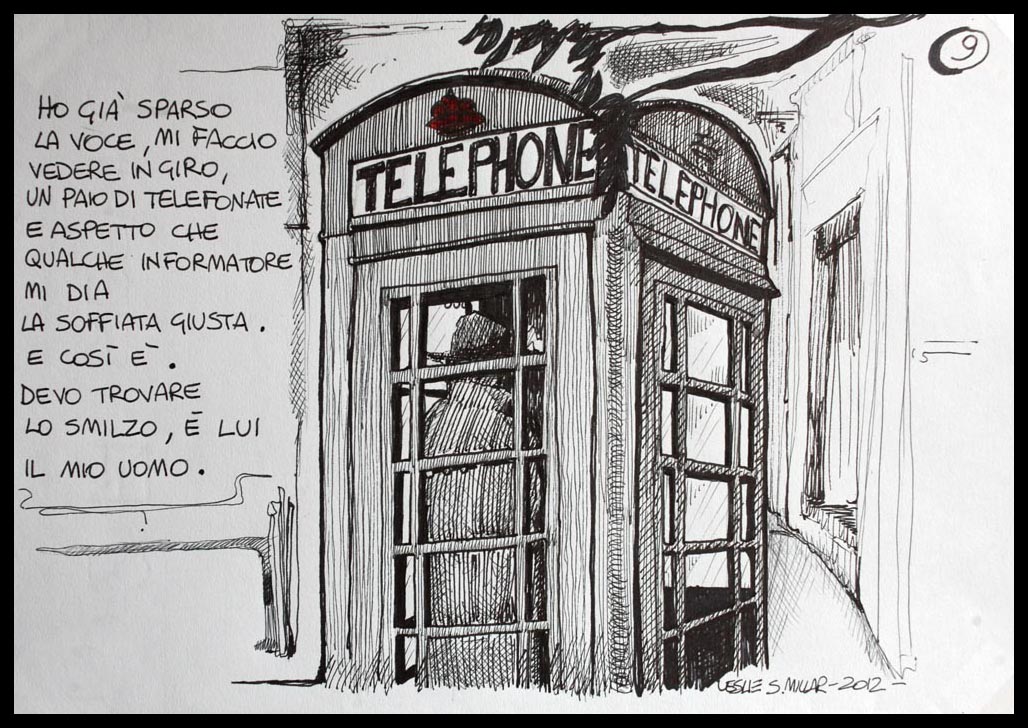 9
HO GIÀ SPARSO
LA VOCE, MI FACCIO
VEDERE IN GIRO,
UN PAIO DI TELEFONATE
E ASPETTO CHE
QUALCHE INFORMATORE
MI DIA
LA SOFFIATA GIUSTA.
E COSÌ È.
DEVO TROVARE
LO SMILZO, È LUI
IL MIO UOMO.
TELEPHONE
TELEPHONE
LESLIE S. MILLAR - 2012 -